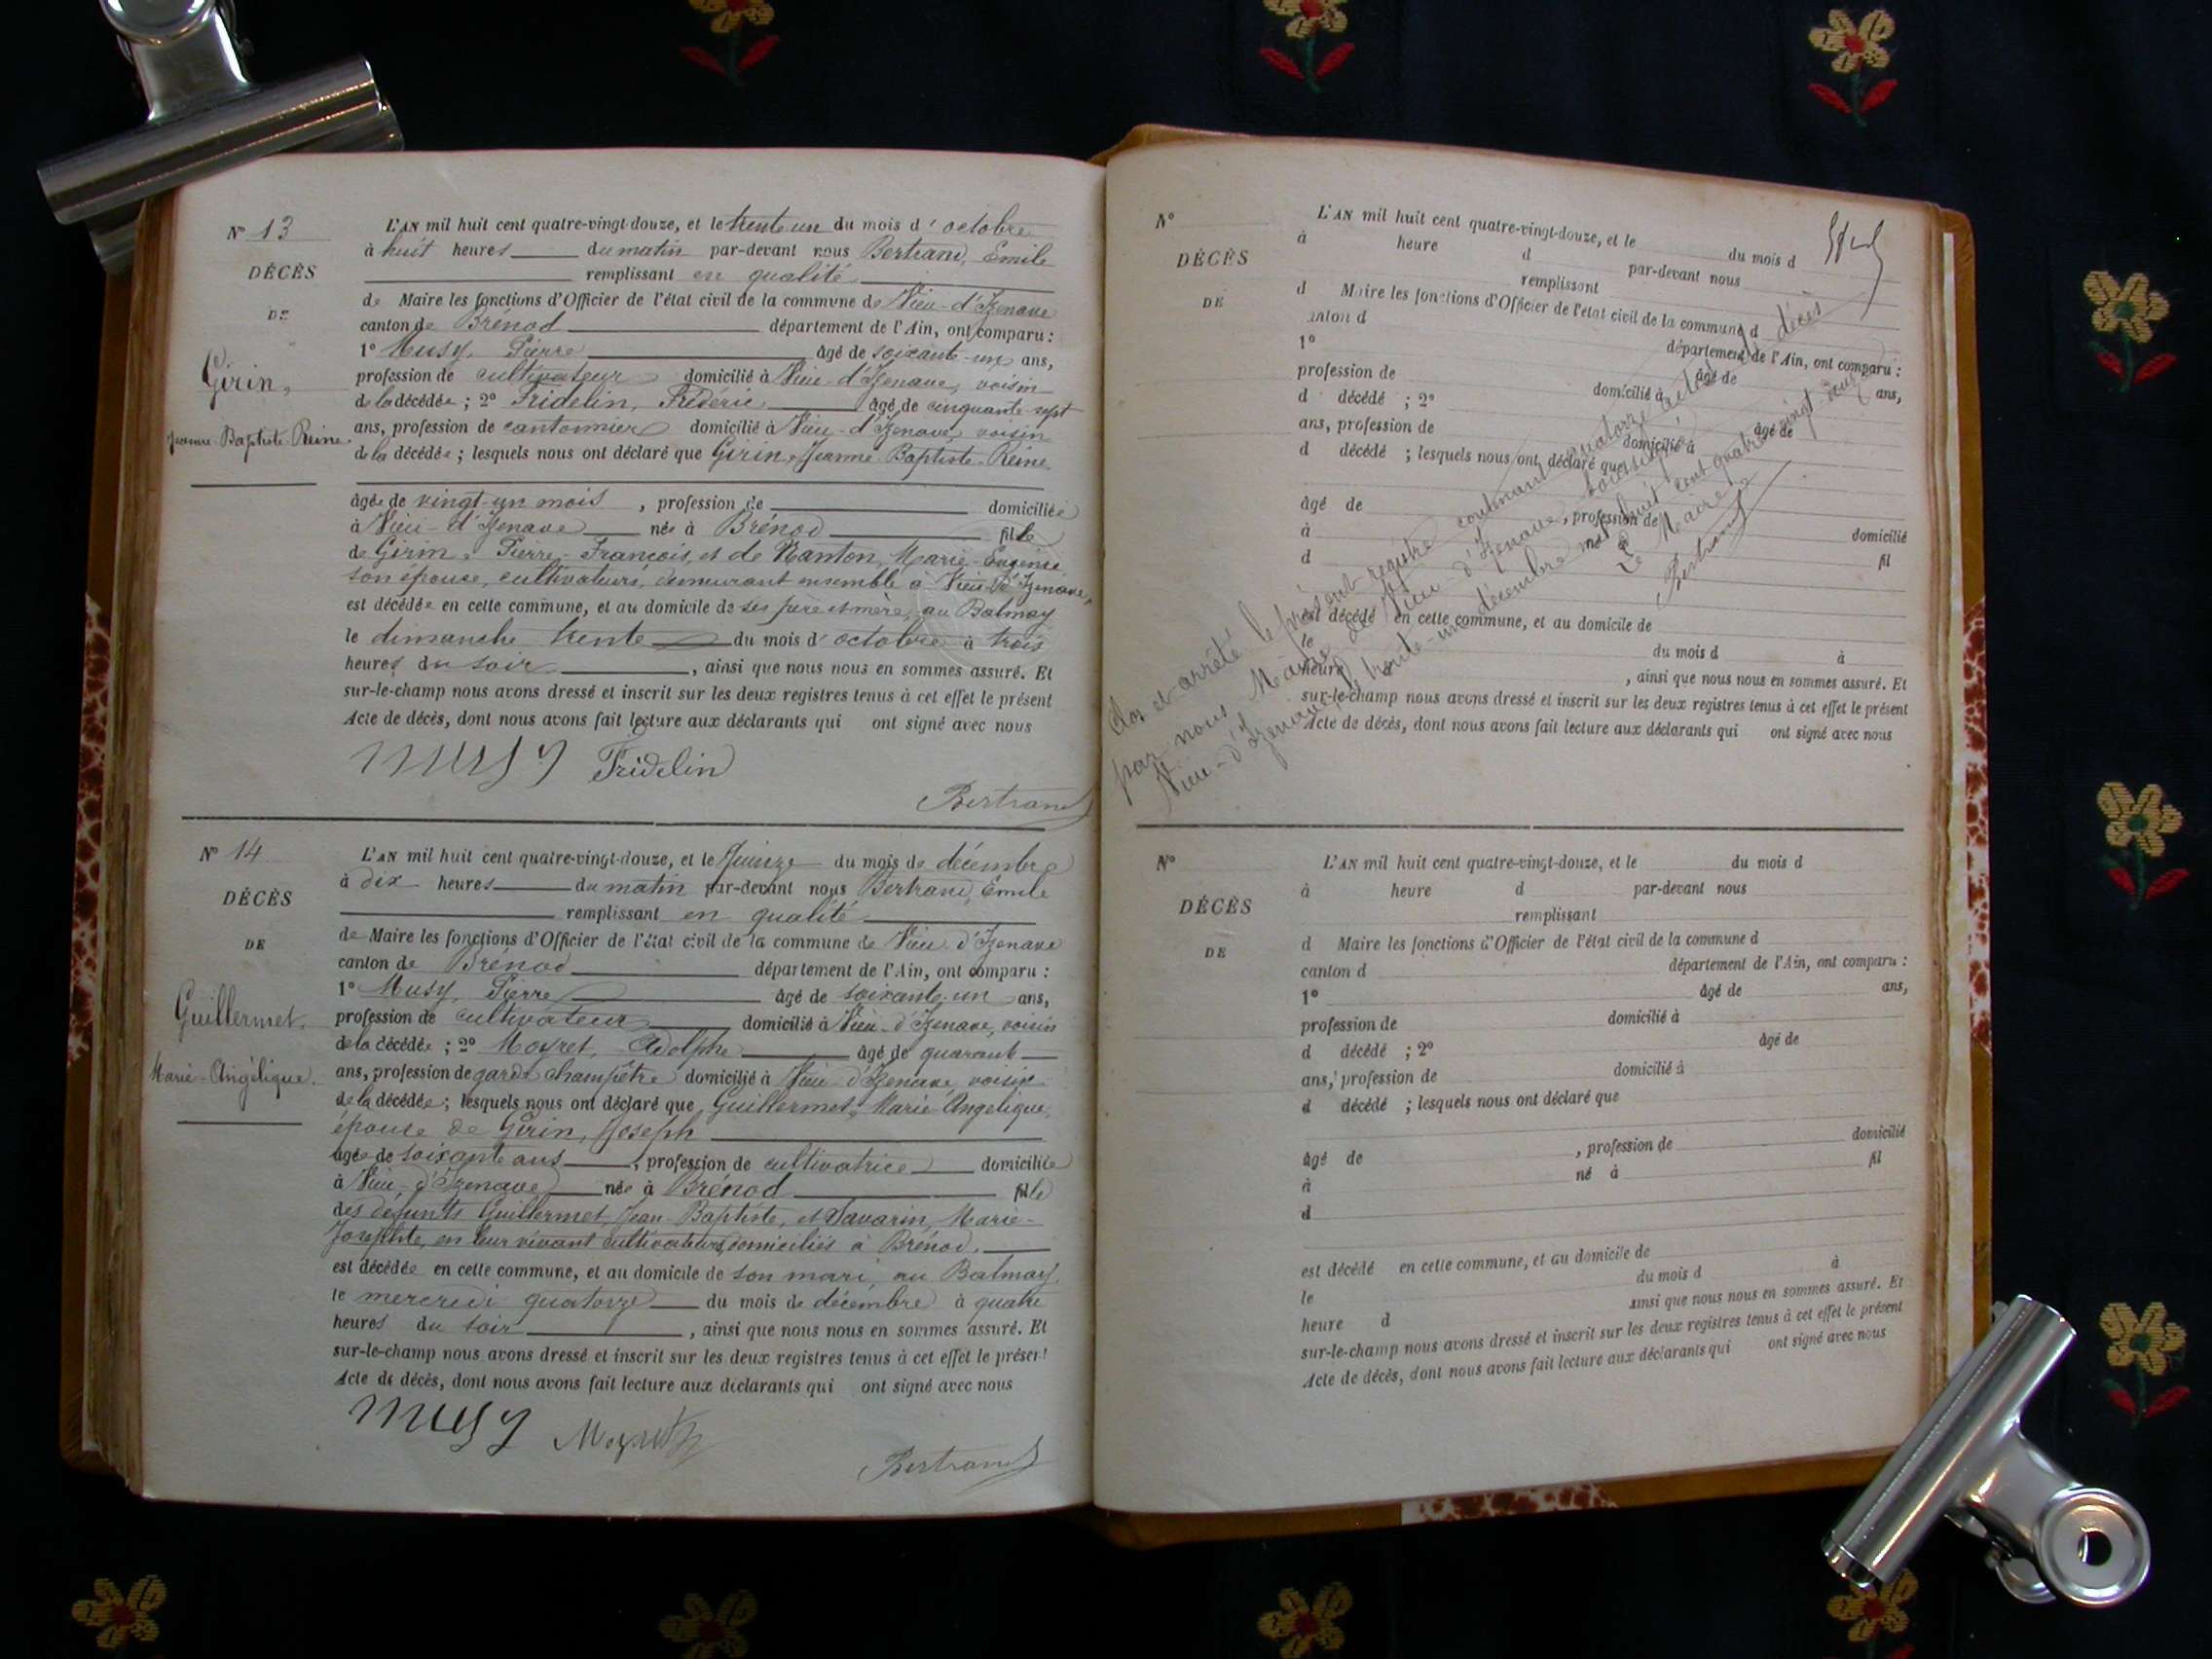 Nº 13
DÉCÈS
DE
Girin,
Jeanne-Baptiste-Reine.
L'AN mil huit cent quatre-vingt-douze, et le trente un du mois d'octobre
à huit heures du matin par-devant nous Bertrand, Emile
remplissant en qualité
de Maire les fonctions d'Officier de l'état civil de la commune de Vieu-d'Izenave
canton de Brénod département de l'Ain, ont comparu :
1º Musy, Pierre âgé de soixante-un ans,
profession de cultivateur domicilié à Vieu-d'Izenave, voisin
de la décédée ; 2º Fridelin, Frédéric âgé de cinquante-sept
ans, profession de cantonnier domicilié à Vieu-d'Izenave, voisin
de la décédée ; lesquels nous ont déclaré que Girin, Jeanne-Baptiste-Reine
âgée de vingt-un mois , profession de domiciliée
à Vieu-d'Izenave née à Brénod fille
de Girin, Pierre-François, et de Nanton, Marie-Eugénie
son épouse, cultivateurs, demeurant ensemble à Vieu-d'Izenave,
est décédée en cette commune, et au domicile de ses père et mère, au Balmay
le dimanche trente du mois d'octobre à trois
heures du soir , ainsi que nous nous en sommes assuré. Et
sur-le-champ nous avons dressé et inscrit sur les deux registres tenus à cet effet le présent
Acte de décès, dont nous avons fait lecture aux déclarants qui ont signé avec nous
Musy Fridelin
Bertrand
Nº 14
DÉCÈS
DE
Guillermet,
Marie-Angélique.
L'AN mil huit cent quatre-vingt-douze, et le quinze du mois de décembre
à dix heures du matin par-devant nous Bertrand, Emile
remplissant en qualité
de Maire les fonctions d'Officier de l'état civil de la commune de Vieu d'Izenave
canton de Brénod département de l'Ain, ont comparu :
1º Musy, Pierre âgé de soixante-un ans,
profession de cultivateur domicilié à Vieu-d'Izenave, voisin
de la décédée ; 2º Moyret, Adolphe âgé de quarante
ans, profession de garde champêtre domicilié à Vieu-d'Izenave, voisin
de la décédée ; lesquels nous ont déclaré que Guillermet, Marie-Angélique,
épouse de Girin, Joseph
âgée de soixante ans , profession de cultivatrice domiciliée
à Vieu-d'Izenave née à Brénod fille
des défunts Guillermet, Jean-Baptiste, et Savarin, Marie-
Josephte, en leur vivant cultivateurs, domiciliés à Brénod.
est décédée en cette commune, et au domicile de son mari, au Balmay,
le mercredi quatorze du mois de décembre à quatre
heures du soir , ainsi que nous nous en sommes assuré. Et
sur-le-champ nous avons dressé et inscrit sur les deux registres tenus à cet effet le présent
Acte de décès, dont nous avons fait lecture aux déclarants qui ont signé avec nous
Musy Moyret
Bertrand
Nº
DÉCÈS
DE
L'AN mil huit cent quatre-vingt-douze, et le du mois d
à heure d par-devant nous
remplissant
d Maire les fonctions d'Officier de l'état civil de la commune d
canton d département de l'Ain, ont comparu :
1º âgé de ans,
profession de domicilié à
d décédé ; 2º âgé de
ans, profession de domicilié à
d décédé ; lesquels nous ont déclaré que
âgé de , profession de domicilié
à né à fil
d
est décédé en cette commune, et au domicile de
le du mois d à
heure d , ainsi que nous nous en sommes assuré. Et
sur-le-champ nous avons dressé et inscrit sur les deux registres tenus à cet effet le présent
Acte de décès, dont nous avons fait lecture aux déclarants qui ont signé avec nous
Clos et arrêté le présent registre contenant quatorze actes de décès
par nous Maire de Vieu d'Izenave soussigné
Vieu-d'Izenave, le trente-un décembre mil huit cent quatre-vingt-douze
Le Maire,
Bertrand
Nº
DÉCÈS
DE
L'AN mil huit cent quatre-vingt-douze, et le du mois d
à heure d par-devant nous
remplissant
d Maire les fonctions d'Officier de l'état civil de la commune d
canton d département de l'Ain, ont comparu :
1º âgé de ans,
profession de domicilié à
d décédé ; 2º âgé de
ans, profession de domicilié à
d décédé ; lesquels nous ont déclaré que
âgé de , profession de domicilié
à né à fil
d
est décédé en cette commune, et au domicile de
le du mois d à
heure d ainsi que nous nous en sommes assuré. Et
sur-le-champ nous avons dressé et inscrit sur les deux registres tenus à cet effet le présent
Acte de décès, dont nous avons fait lecture aux déclarants qui ont signé avec nous